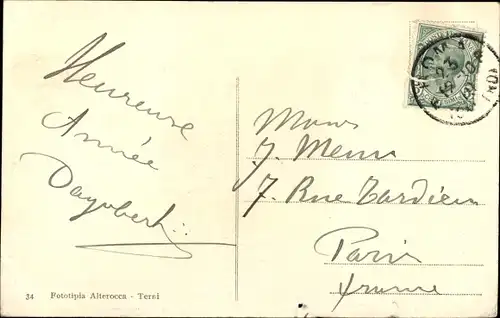 Heureuse
Année
Dagobert
Mons
J. Menu
7. Rue Tardieu
Paris
france
34 Fototipia Alterocca - Terni
ROMA